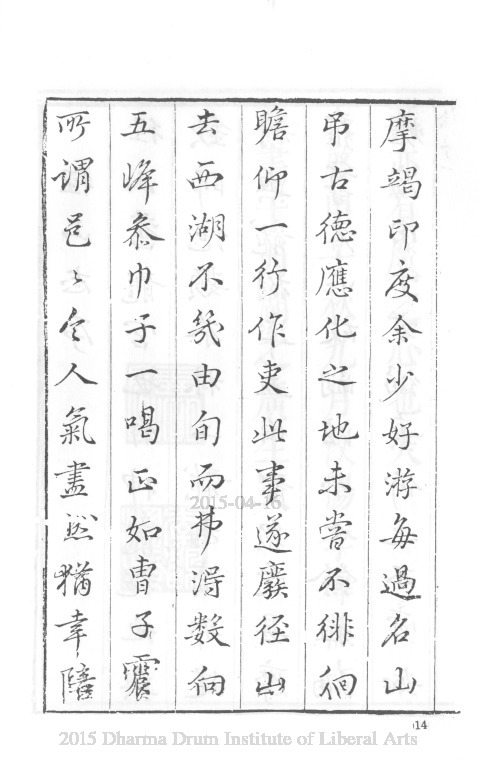 摩竭印度余少好游每過名山
弔古德應化之地未嘗不徘徊
瞻仰一行作吏此事遂廢径山
去西湖不幾由旬而弗淂数徊
五峰叅巾子一喝正如曹子震
所謂邑〻令人氣盡然猶幸隌
14
2015-04-16
2015 Dharma Drum Institute of Liberal Arts